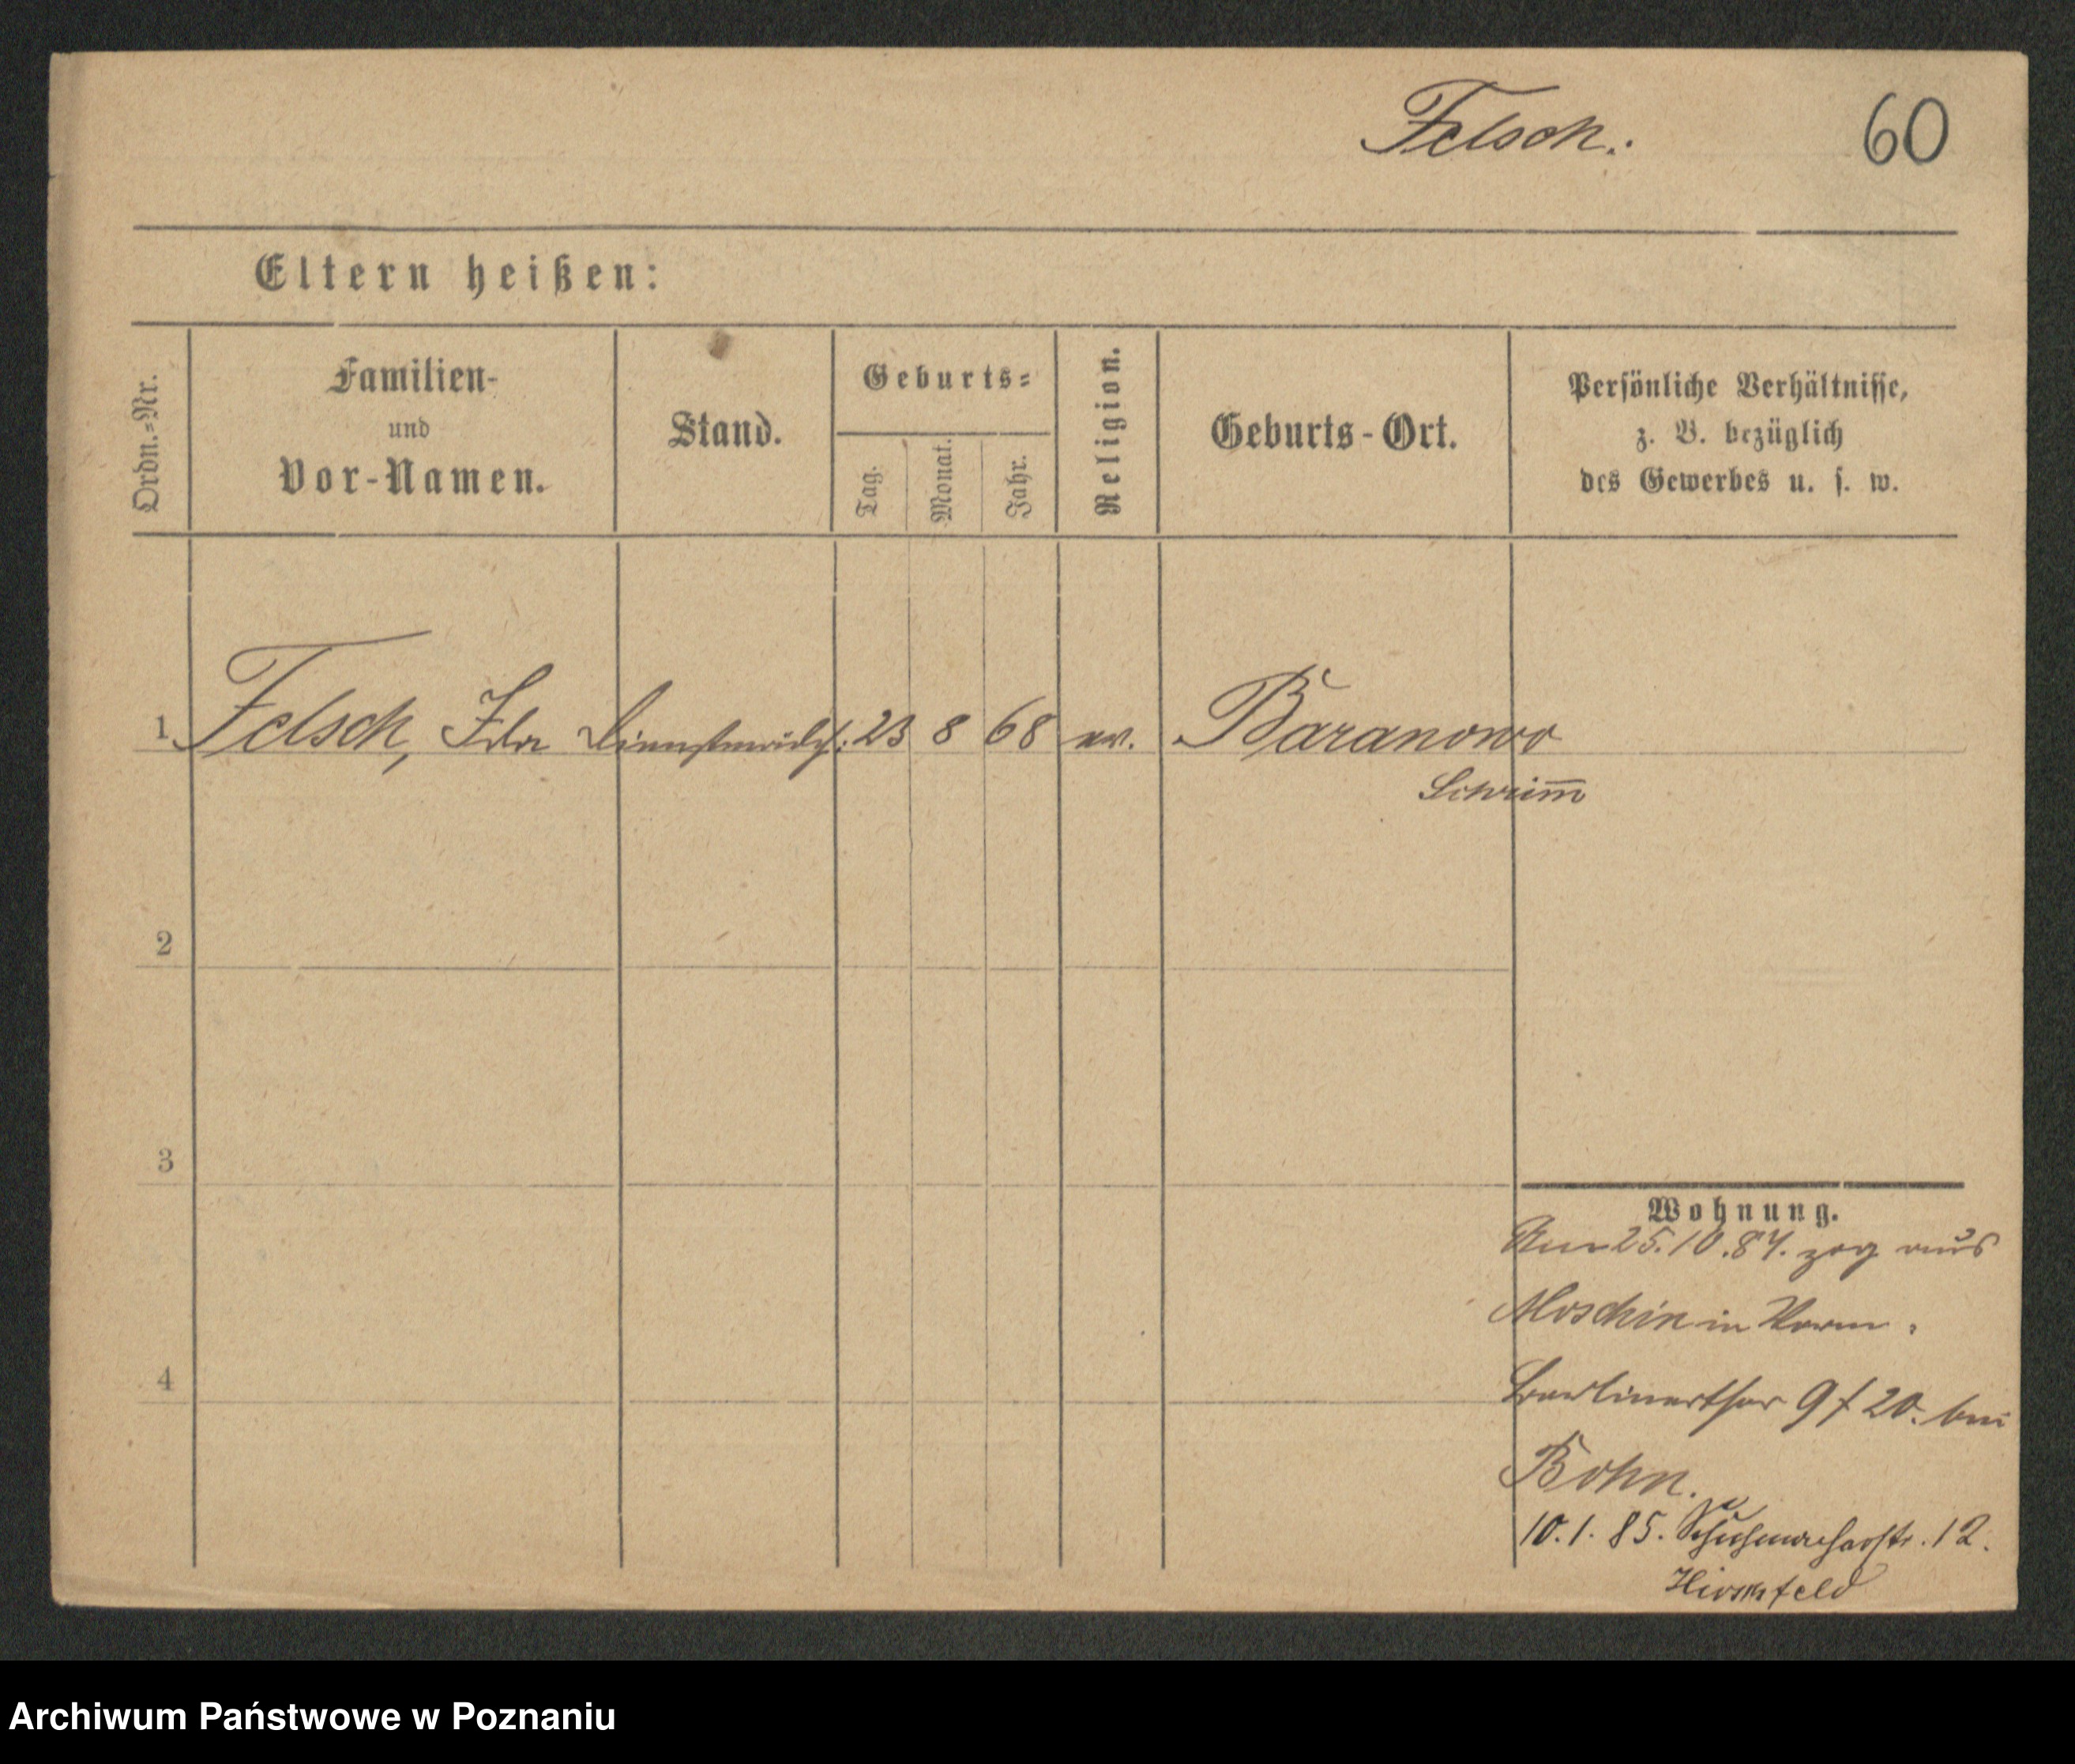 Felsch.
60
Eltern heißen:
Ordn.-Nr.
Familien-
und
Vor-Namen.
Stand.
Geburts-
Tag.
Monat.
Jahr.
Religion.
Geburts-Ort.
Persönliche Verhältnisse,
z. B. bezüglich
des Gewerbes u. s. w.
1 Felsch, Ida Dienstmädch: 23 8 68 ev. Baranowo
Schrim̅
2
3
4
Wohnung.
Am 25.10.84. zog aus
Moschin in
Berlinerthor 9/20. bei
Bohn.
10.1.85. Schuhmacherstr. 12.
Hirschfeld
Archiwum Państwowe w Poznaniu